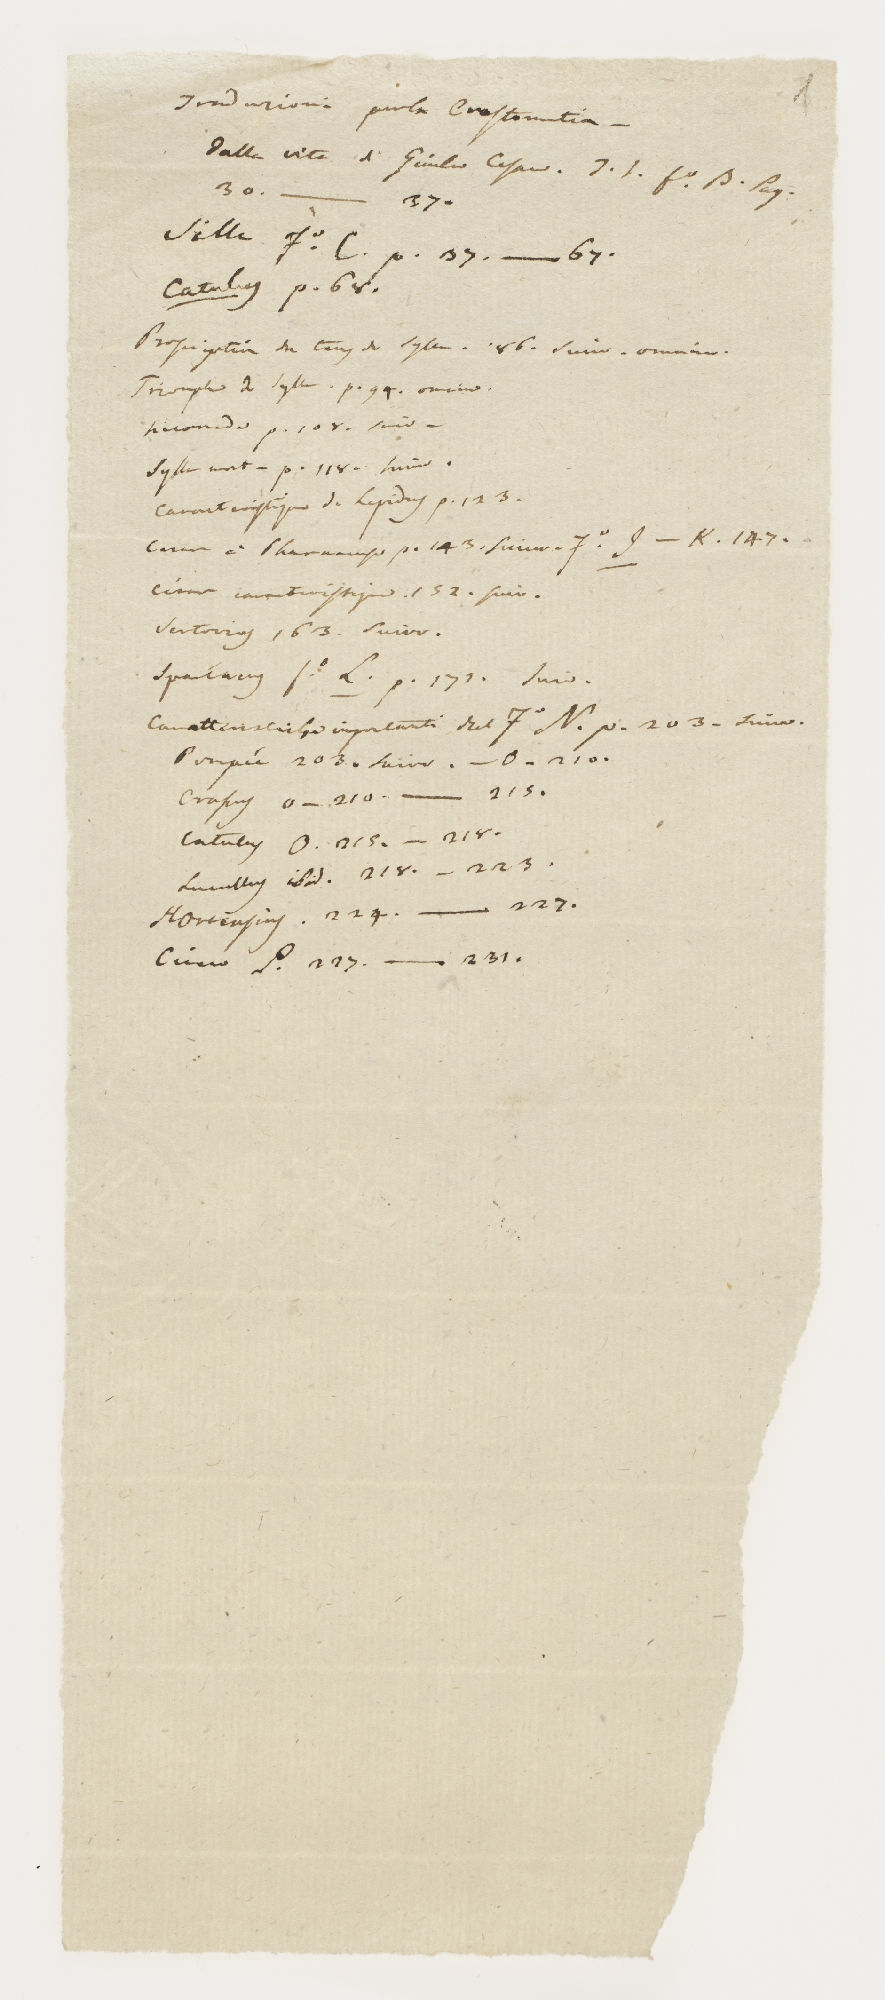 1
Traduzioni per la Crestomatia —
Dalla vita di Giulio Cesare. T. 1. fo. B. Pag.
30. — 37.
Silla Fo. C. p. 37. — 67.
Catulus p. 68.
Proscription du tems de Sylla. 86. suiv. omnino.
Triomphe de Sylla. p. 94. omnino.
p. 108. suiv —
Sylla mort — p. 118. suiv.
Caracteristique de Lepidus p. 123.
Cesar à Pharmacuse p. 143. suivv. Fo. I — K. 147.
César caracteristique. 152. suiv.
Sertorius 163. suivv.
Spartacus fo. L. p. 171. suiv.
Caratteristiche importanti del Fo N. p. 203 — suivv.
Pompée 203. suivv. — O — 210.
Crassus O — 210. — 215.
Catulus O. 215. — 218.
Lucullus ibid. 218. — 223.
Hortensius. 224. — 227.
Cicero P. 227. — 231.